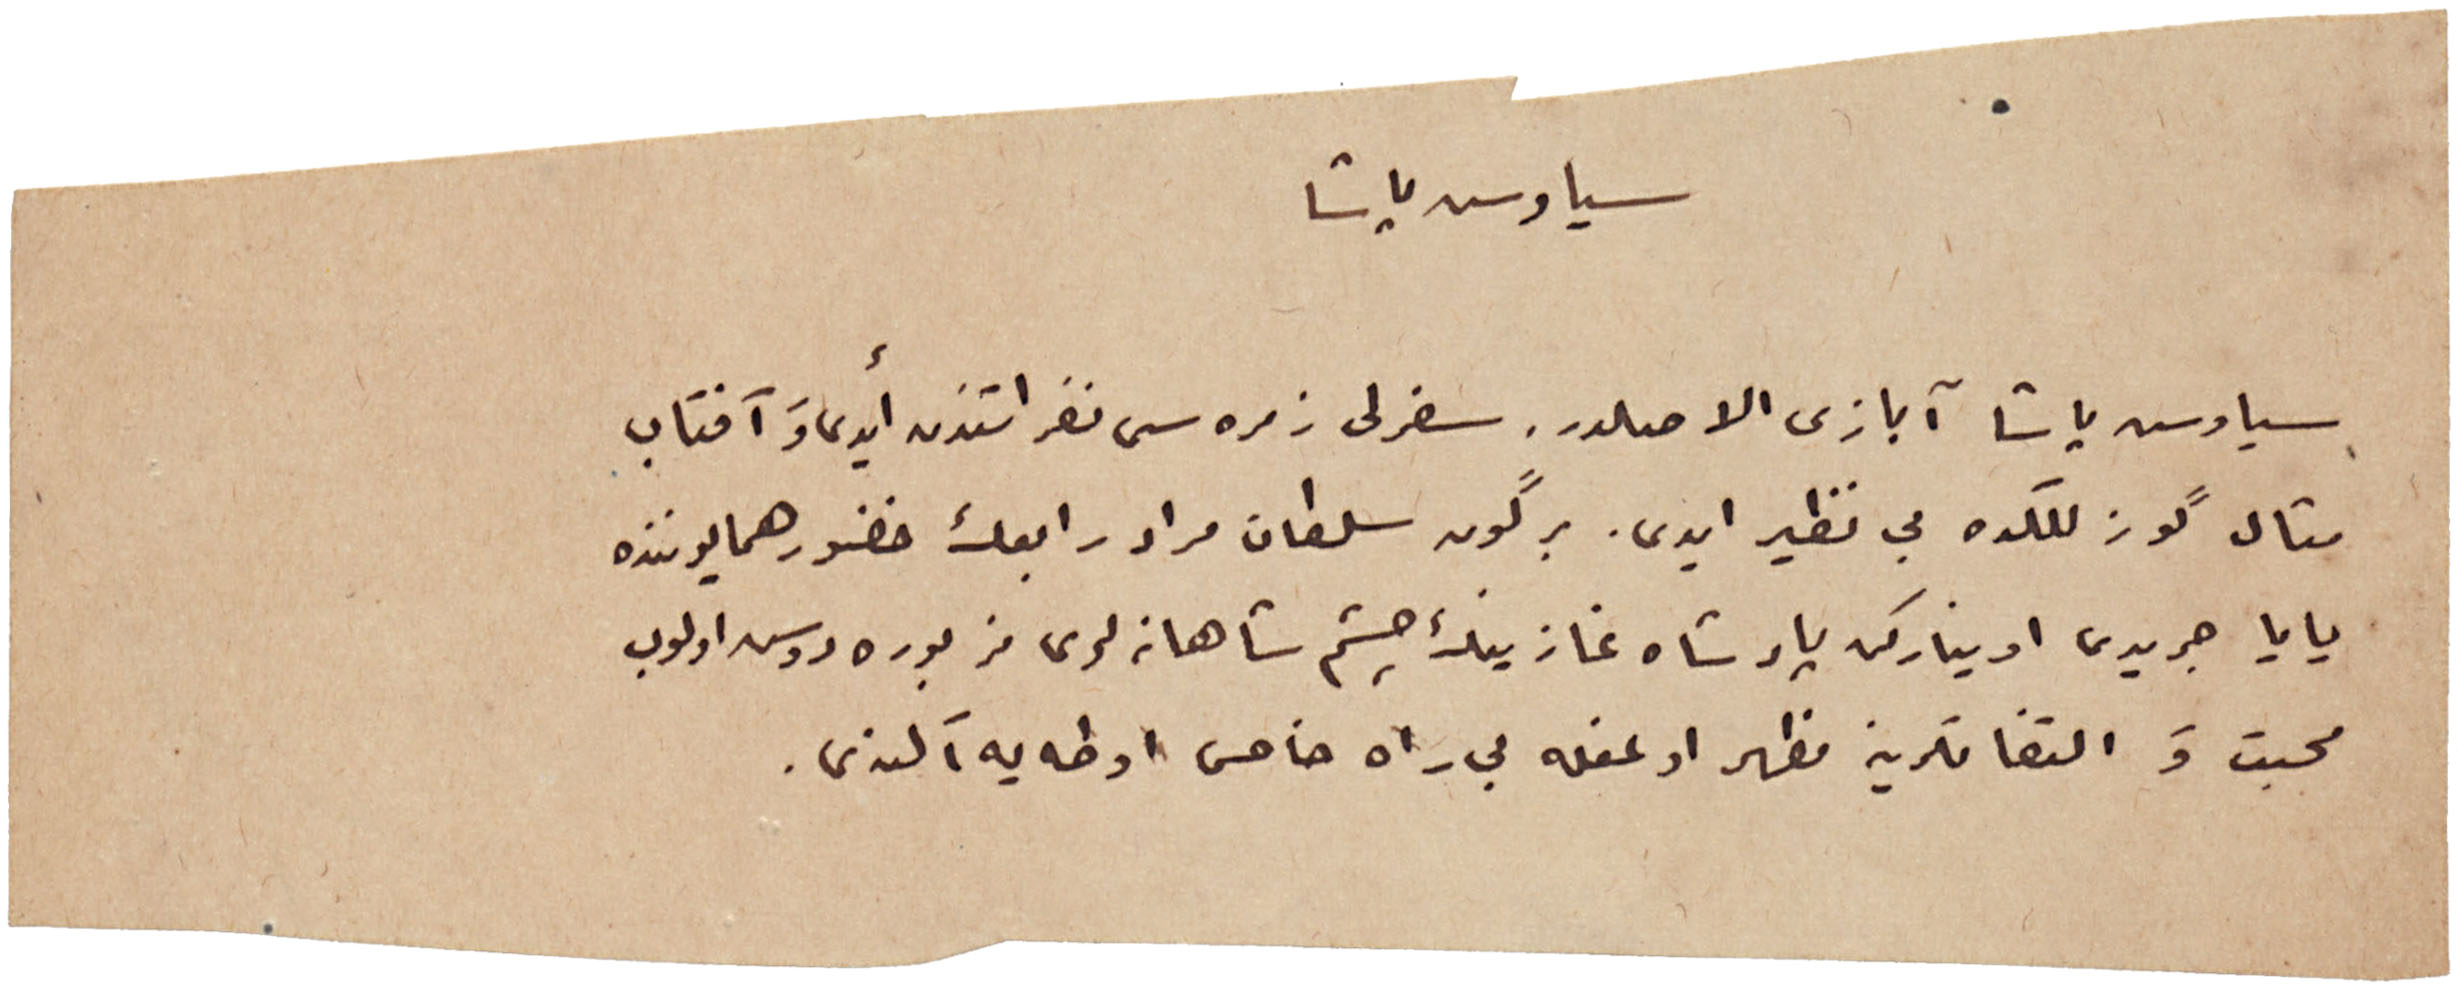 سیاوس پاشا
سیاوس پاشا آبازی الاصلدر. سفرلی زمره سی نفراتندن أیدی وَ آفتاب
مثال گوزللکده بی نظیر ایدی. برگون سلطان مراد رابعڭ حضور همایوننده
یایا جریدی اوینارکن پادشاه غازینڭ چشم شاهانه لری مزبوره دوس اولوب
محبت وَ التفاتلرینه مظهر اولمغله بی راه خاص اوطه یه آلندی.